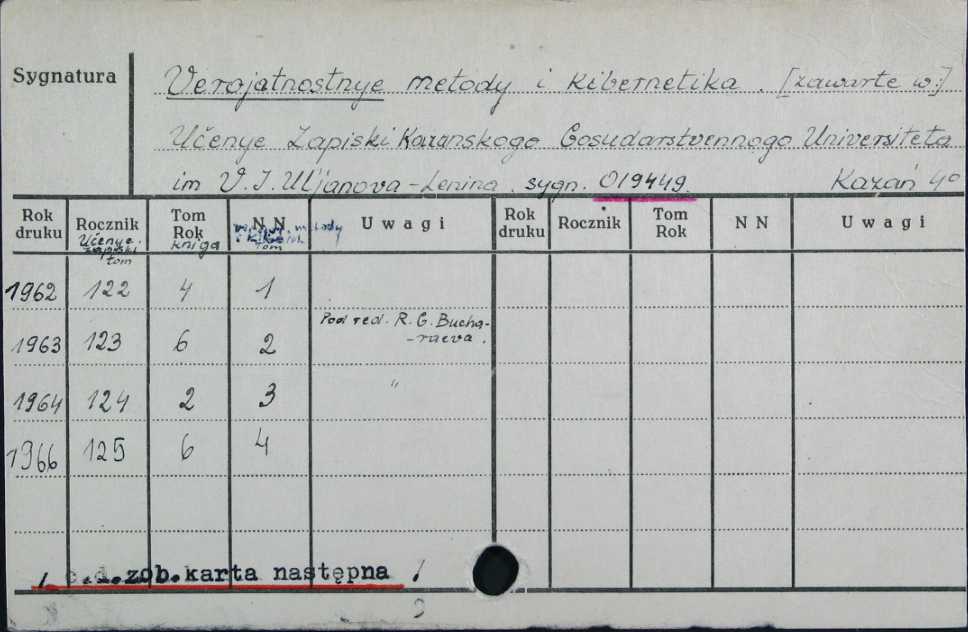 Sygnatura
Verojatnostnye metody i kibernetika. [zawarte w:]
Učenye Zapiski Kazanskogo Gosudarstvennogo Universiteta
im V.I. Ul'janova-Lenina. sygn. 019449. Kazań 4°
Rok druku Rocznik Tom Rok NN Uwagi Rok druku Rocznik Tom Rok NN Uwagi
Učenye zapiski tom kniga metody i tom
1962 122 4 1
1963 123 6 2 Pod red. R.G. Bucha-
-raeva.
1964 124 2 3 "
1966 125 6 4
c.d.zob.karta następna